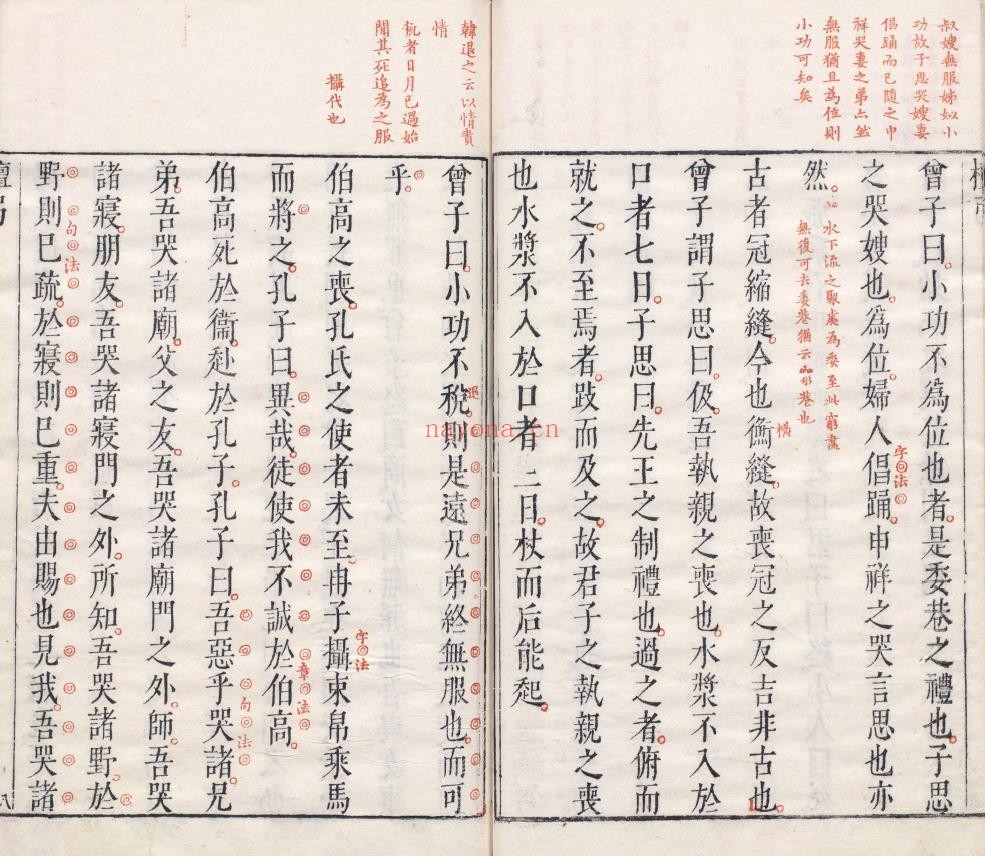 叔嫂無服娣姒小
功故子思哭嫂妻
倡踊而已隨之申
祥哭妻之弟亦然
無服猶且為位則
小功可知矣
檀弓
曾子曰小功不爲位也者是委巷之禮也子思
之哭嫂也爲位婦人倡踊申祥之哭言思也亦
字法
然
水下流之聚處為委至此窮盡
無復可去委巷猶云 巷也
古者冠縮縫今也衡縫故喪冠之反吉非古也
曾子謂子思曰伋吾執親之喪也水漿不入於
口者七日子思曰先王之制禮也過之者俯而
就之不至焉者跂而及之故君子之執親之喪
也水漿不入於口者三日杖而后能起
韓退之云以情責
情
稅者日月已過始
聞其死追為之服
攝代也
曾子曰小功不稅則是遠兄弟終無服也而可
乎
伯高之喪孔氏之使者未至冉子攝束帛乘馬
字法
而將之孔子曰異哉徒使我不誠於伯高
章法
伯高死於衞赴於孔子孔子曰吾惡乎哭諸兄
句法
弟吾哭諸廟父之友吾哭諸廟門之外師吾哭
諸寢朋友吾哭諸寢門之外所知吾哭諸野於
野則已疏於寢則已重夫由賜也見我吾哭諸
句法
檀弓
八
nayona.cn